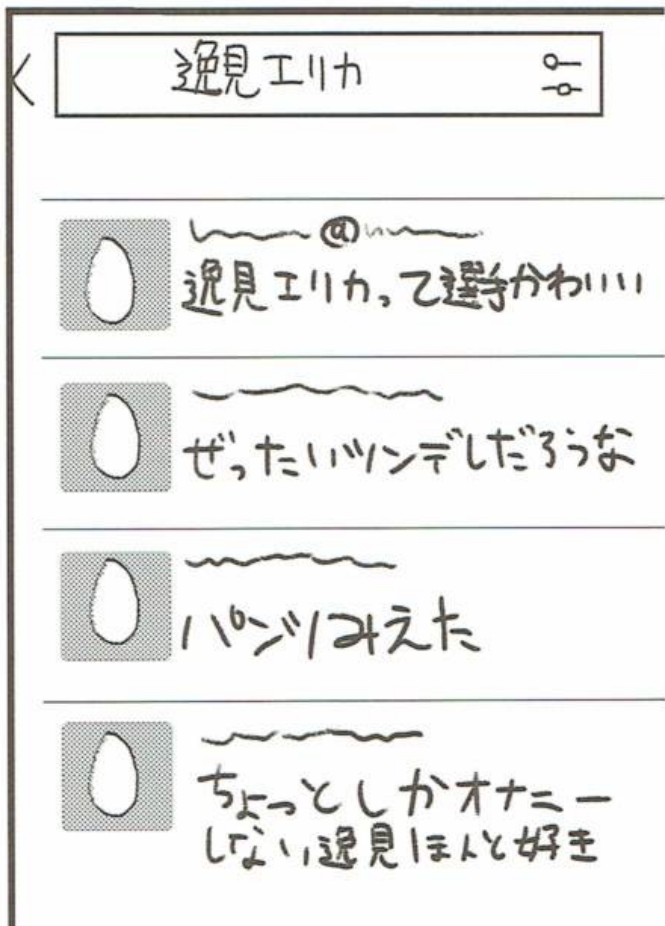 逸見エリカ
@
逸見エリカって選手かわいい
ぜったいツンデレだろうな
パンツみえた
ちょっとしかオナニー
しない逸見ほんと好き